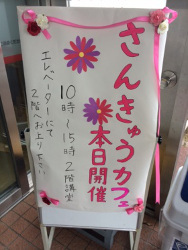 さんきゅうカフェ
本日開催
10時～15時2階講堂
エレベーターにて
2階へお上り下さい